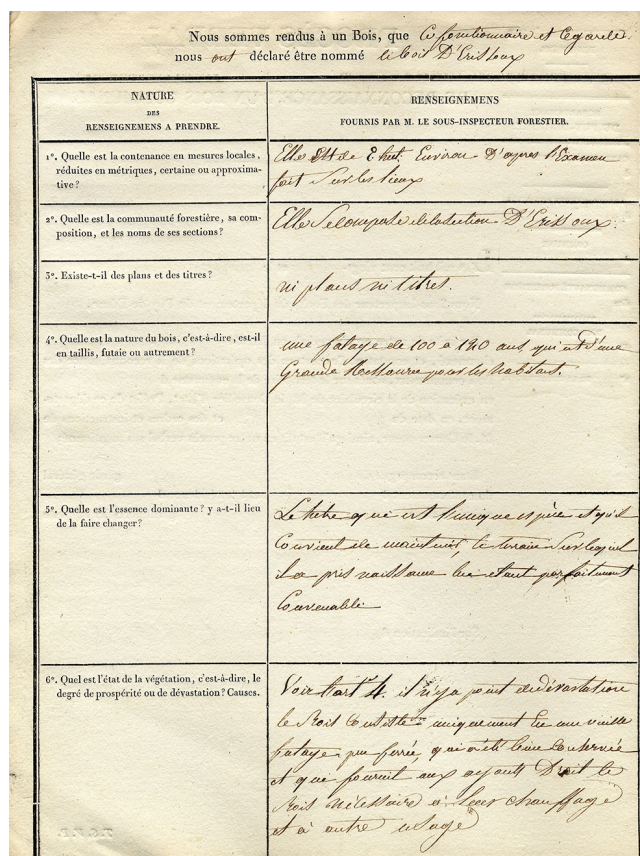 Nous sommes rendus à un Bois, que Ce fonctionnaire et Le garde
nous ont déclaré être nommé le bois D'Erissoux
NATURE
DES
RENSEIGNEMENS A PRENDRE.
RENSEIGNEMENS
FOURNIS PAR M. LE SOUS-INSPECTEUR FORESTIER.
1º. Quelle est la contenance en mesures locales,
réduites en métriques, certaine ou approxima-
tive?
Elle Est de 8 hect. Environ D'apres l'Examen
fait Sur les lieux
2º. Quelle est la communauté forestière, sa com-
position, et les noms de ses sections?
Elle Se compose de la section D'Erissoux.
3º. Existe-t-il des plans et des titres?
ni plans ni titres.
4º. Quelle est la nature du bois, c'est-à-dire, est-il
en taillis, futaie ou autrement?
une futaye de 100 à 120 ans, qui est d'une
Grande Ressource pour les habitant.
5º. Quelle est l'essence dominante? y a-t-il lieu
de la faire changer?
Le hetre qui est l'unique espèce et qu'il
Convient de maintenir, le terrain Sur lequel
il a pris naissance lui etant parfaitement
Convenable
6º. Quel est l'état de la végétation, c'est-à-dire, le
degré de prospérité ou de dévastation? Causes.
Voir l'art 4. il n'y a point de dévastation
le Bois Consiste uniquement En une vieille
futaye peu serrée, qui a été bien Conservée
et qui fournit aux ayants Droit le
Bois nécessaire à leur chauffage
et à autre usage